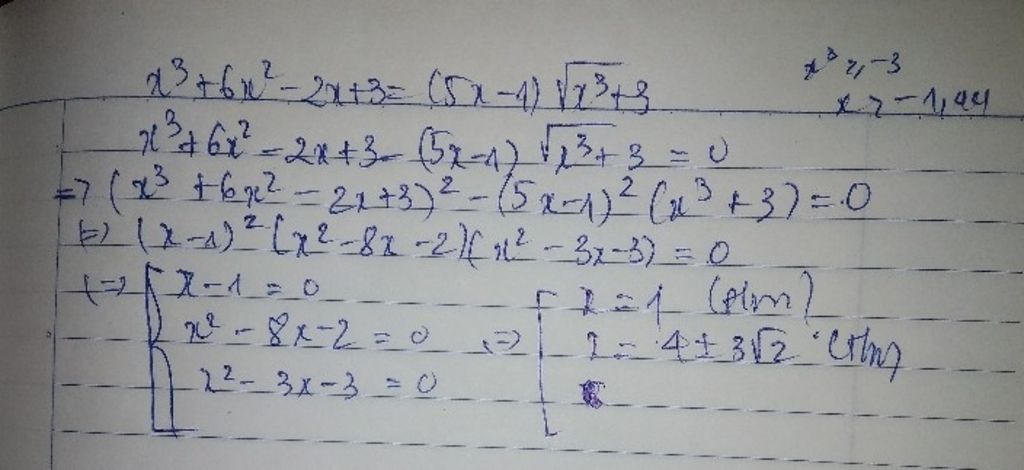 x³ + 6x² - 2x + 3 = (5x - 1) √x³+3
x³ ≥ -3
x ≥ -1,44
x³ + 6x² - 2x + 3 - (5x - 1) √x³+3 = 0
=> (x³ + 6x² - 2x + 3)² - (5x - 1)² (x³ + 3) = 0
(=) (x - 1)² (x² - 8x - 2)(x² - 3x - 3) = 0
(=) [ x - 1 = 0
x² - 8x - 2 = 0
x² - 3x - 3 = 0
(=) [ x = 1 (t/m)
x = 4 ± 3√2 (t/m)